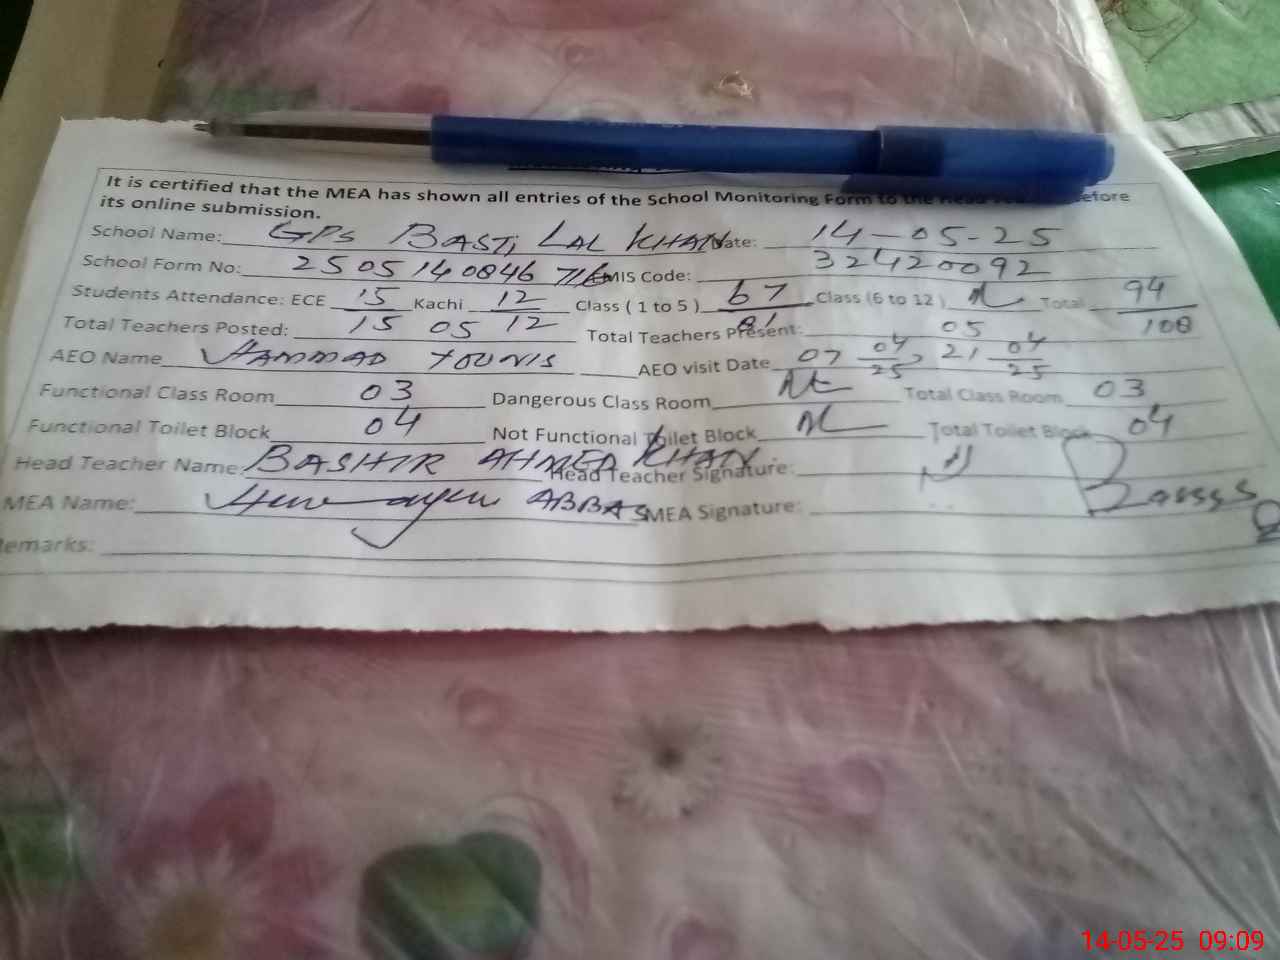 It is certified that the MEA has shown all entries of the School Monitoring Form to the Head before
its online submission.
School Name: GPS BASTI LAL KHAN Date: 14-05-25
School Form No: 2505140846 716 EMIS Code: 32420092
Students Attendance: ECE 15/15 Kachi 12/12 Class (1 to 5) 67/81 Class (6 to 12) Total 94/108
Total Teachers Posted: 05 Total Teachers Present: 05
AEO Name HAMMAD YOUNIS AEO visit Date 07 04/25, 21 04/25
Functional Class Room 03 Dangerous Class Room Total Class Room 03
Functional Toilet Block 04 Not Functional Toilet Block Total Toilet Block 04
Head Teacher Name: BASHIR AHMED KHAN Head Teacher Signature:
MEA Name: ABBAS MEA Signature:
Remarks:
14-05-25 09:09